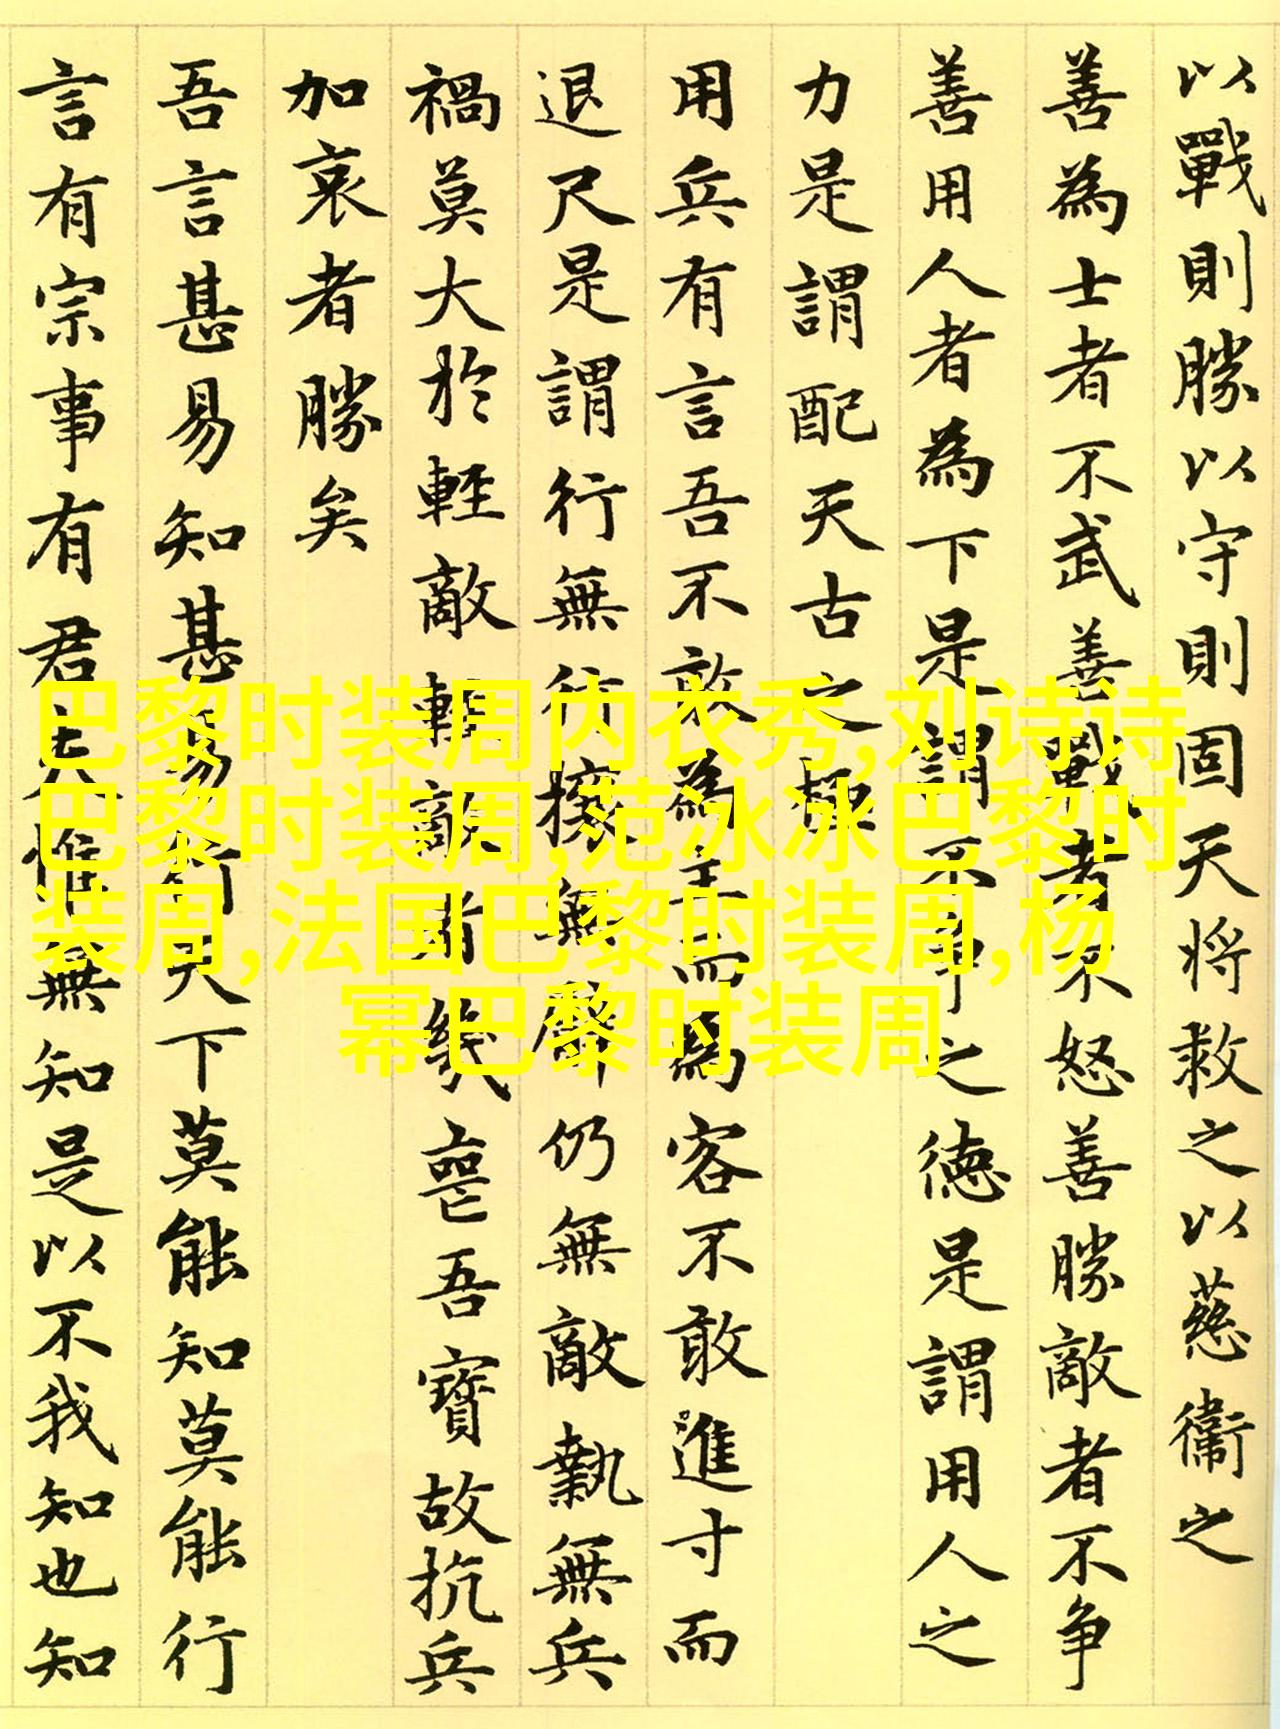 以戰則勝以守則固天將救之以慈衞之
善為士者不武善戰者不怒善勝敵者不争
善用人者為下是謂不争之德是謂用人之
力是謂配天古之極
用兵有言吾不敢為主而為客不敢進寸而
退尺是謂行無行攘無臂仍無敵執無兵
禍莫大於輕敵輕敵者幾喪吾寶故抗兵
加哀者勝矣
吾言甚易知甚易行天下莫能知莫能行
言有宗事有君夫惟無知是以不我知也知
巴黎时装周内衣秀,刘诗诗
巴黎时装周,范冰冰巴黎时
装周,法国巴黎时装周,杨
幂巴黎时装周